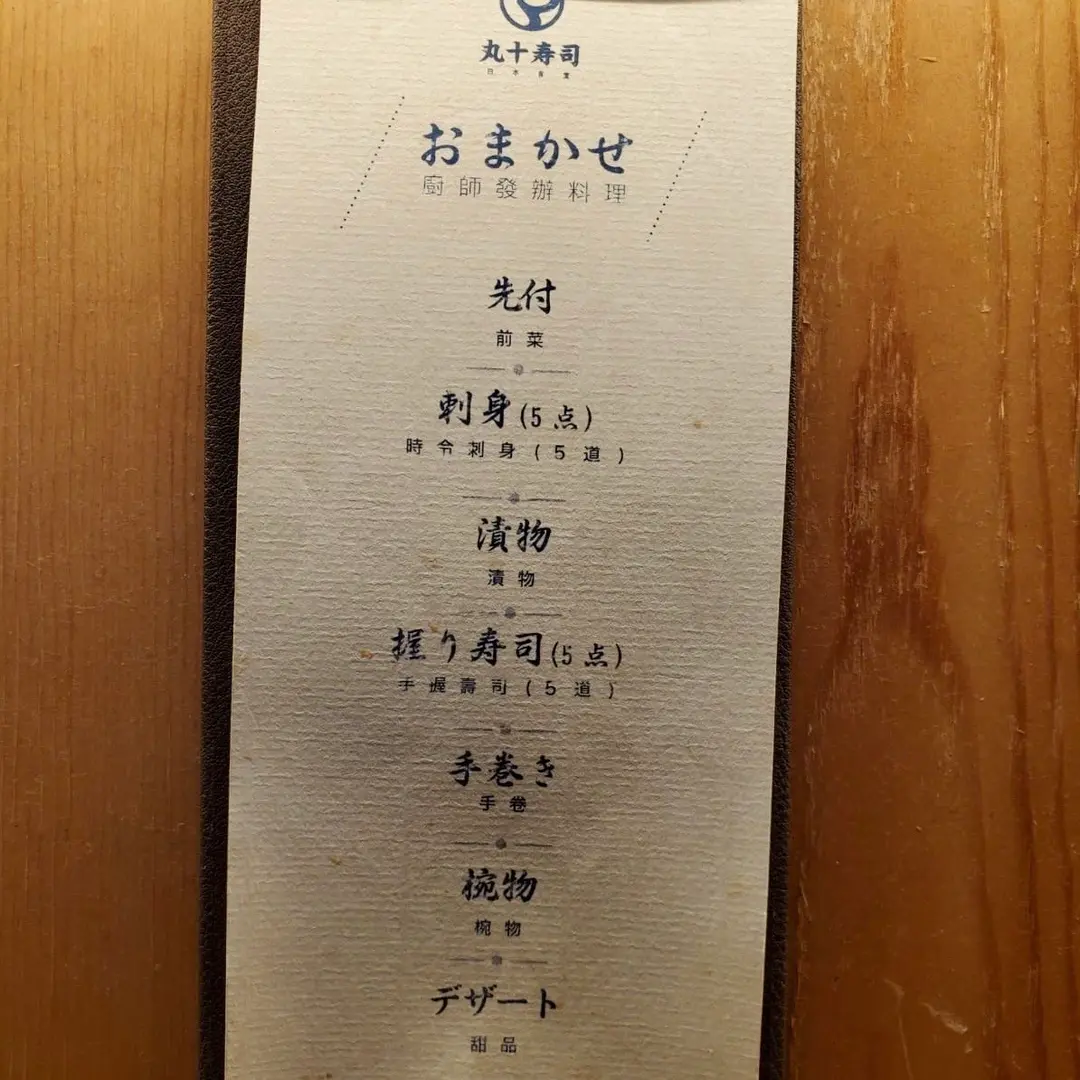 丸十寿司
日本食堂
おまかせ
廚師發辦料理
先付
前菜
刺身(5点)
時令刺身(5道)
漬物
漬物
握り寿司(5点)
手握壽司(5道)
手巻き
手卷
椀物
椀物
デザート
甜品